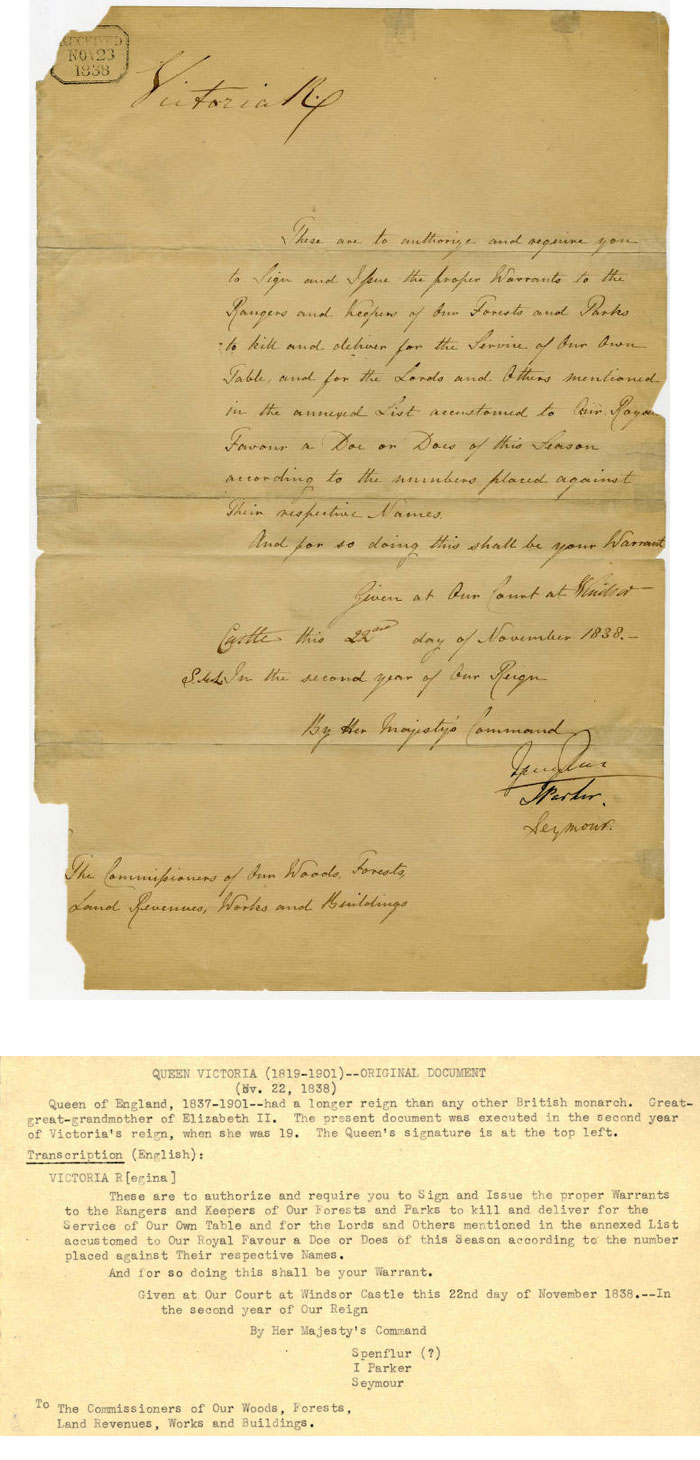 RECEIVED
NOV 23
1838
Victoria R
These are to authorize and require you
to Sign and Issue the proper Warrants to the
Rangers and Keepers of Our Forests and Parks
to kill and deliver for the Service of Our Own
Table, and for the Lords and Others mentioned
in the annexed List accustomed to Our Royal
Favour a Doe or Does of this Season
according to the numbers placed against
Their respective Names.
And for so doing this shall be your Warrant
Given at Our Court at Windsor
Castle this 22nd day of November 1838.—
In the second year of Our Reign
By Her Majesty's Command
Parker.
Seymour.
The Commissioners of Our Woods, Forests,
Land Revenues, Works and Buildings
QUEEN VICTORIA (1819-1901)--ORIGINAL DOCUMENT
(Nv. 22, 1838)
Queen of England, 1837-1901--had a longer reign than any other British monarch. Great-
great-grandmother of Elizabeth II. The present document was executed in the second year
of Victoria's reign, when she was 19. The Queen's signature is at the top left.
Transcription (English):
VICTORIA R[egina]
These are to authorize and require you to Sign and Issue the proper Warrants
to the Rangers and Keepers of Our Forests and Parks to kill and deliver for the
Service of Our Own Table and for the Lords and Others mentioned in the annexed List
accustomed to Our Royal Favour a Doe or Does of this Season according to the number
placed against Their respective Names.
And for so doing this shall be your Warrant.
Given at Our Court at Windsor Castle this 22nd day of November 1838.--In
the second year of Our Reign
By Her Majesty's Command
Spenflur (?)
I Parker
Seymour
To The Commissioners of Our Woods, Forests,
Land Revenues, Works and Buildings.